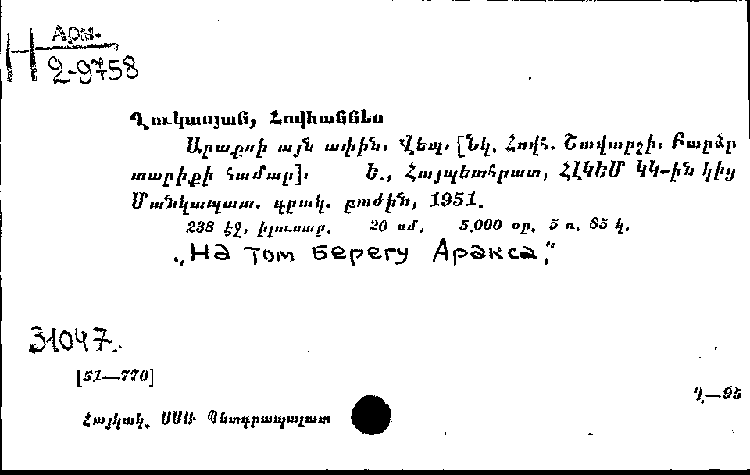 Арм.
H 2-9758
Ղուկասյան, Հովհաննես
Արաքսի այն ափին. Վեպ. [Նկ. Հովհ. Շավարշի. Բարձր
տարիքի համար]. Ե., Հայպետհրատ, ՀԼԿԵՄ ԿԿ-ին կից
Մանկապատ. գրակ. բաժին, 1951.
238 էջ, իլյուստր. 20 սմ. 5.000 օր. 5 ռ. 65 կ.
„На том берегу Аракса."
31047.
[51—770]
Ղ—95
Հայկակ. ՍՍՌ Պետգրապալատ